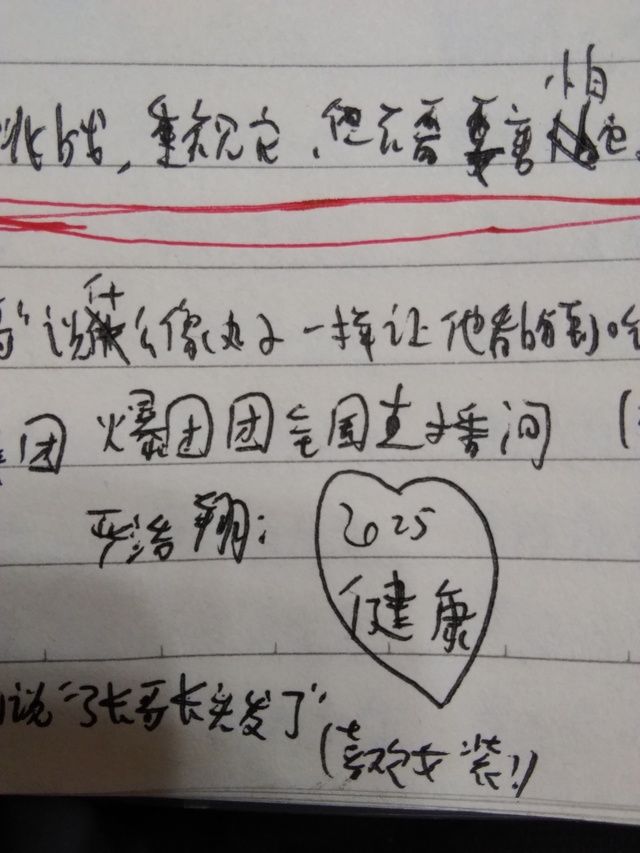 挑战,重视它,但不需要害怕它,
说什么像丸子一样让他看的到
团 爆团团全国直播间 (
严浩翔: 2025
健康
说"张哥长头发了"
(喜欢女装!)